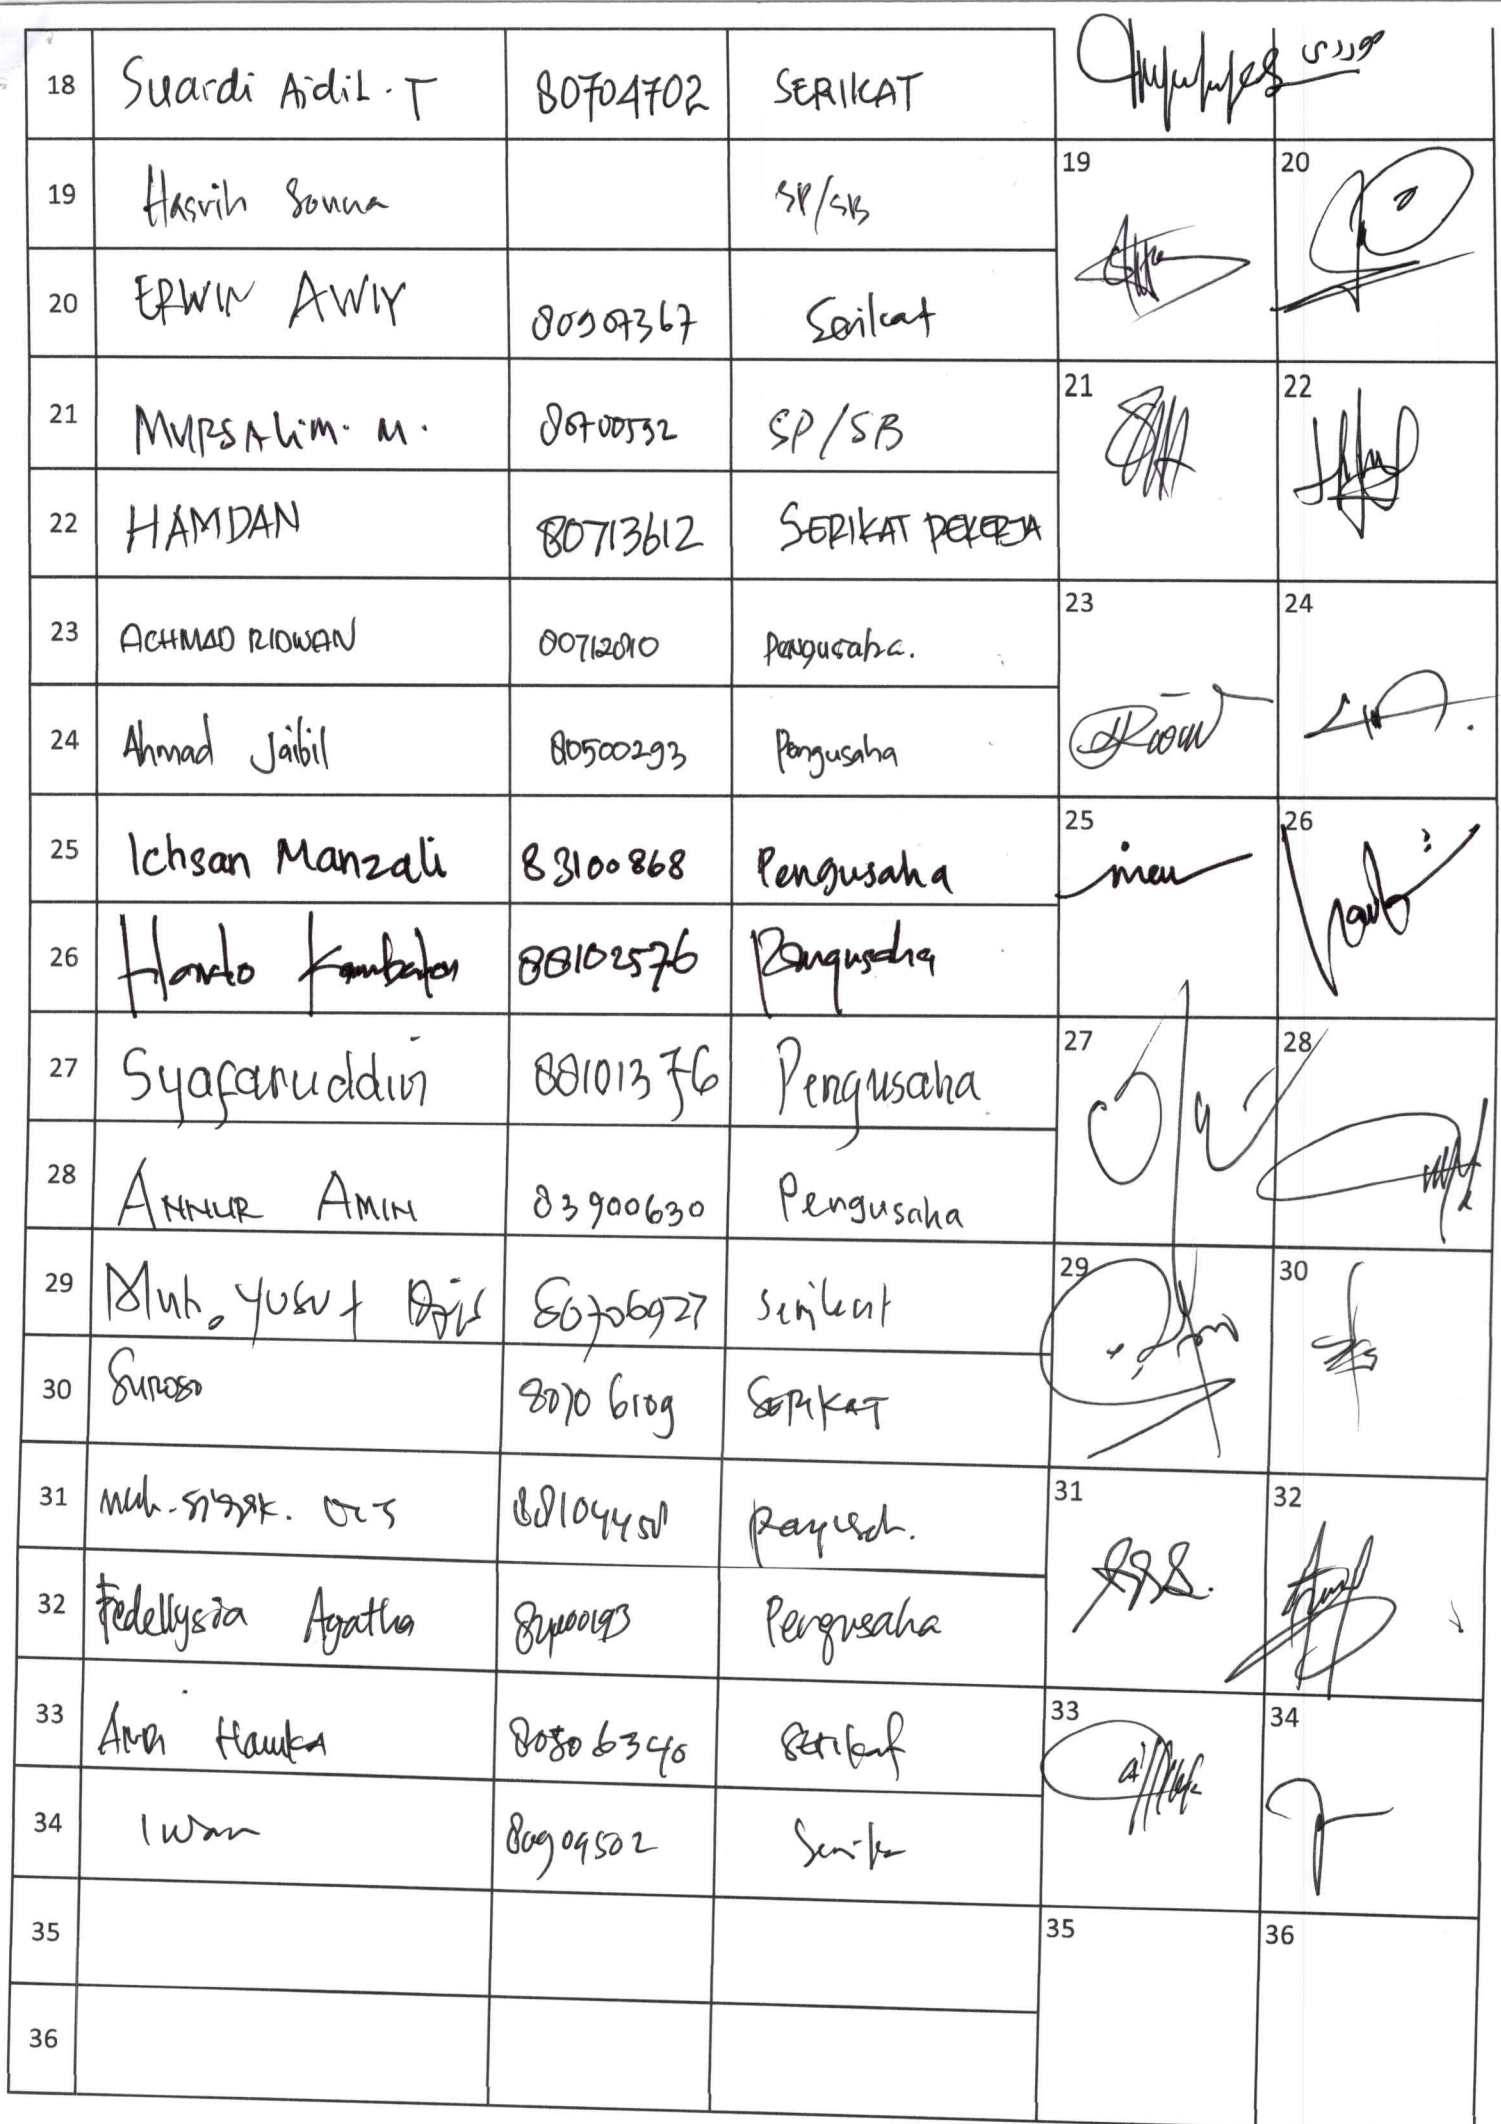 18 Suardi Aidil. T 80704702 SERIKAT
19 Hasrih Sonna SP/SB 19 20
20 ERWIN AWIY 80907367 Serikat
21 MURSALiM. M. 80700532 SP/SB 21 22
22 HAMDAN 80713612 SERIKAT PEKERJA
23 ACHMAD RIDWAN Pengusaha. 23 24
24 Ahmad Jaibil 80500293 Pengusaha
25 Ichsan Manzali 83100868 Pengusaha 25 26
26 88102576 Pengusaha
27 Syafaruddin 88101376 Pengusaha 27 28
28 ANNUR AMIN 83900630 Pengusaha
29 Muh. Yusuf 80706927 Serikat 29 30
30 Suroso 80706109 SERIKAT
31 31 32
32 Fedellysia Agatha Pengusaha
33 Hamka 80806340 Serikat 33 34
34 Iwan 80909502
35 35 36
36